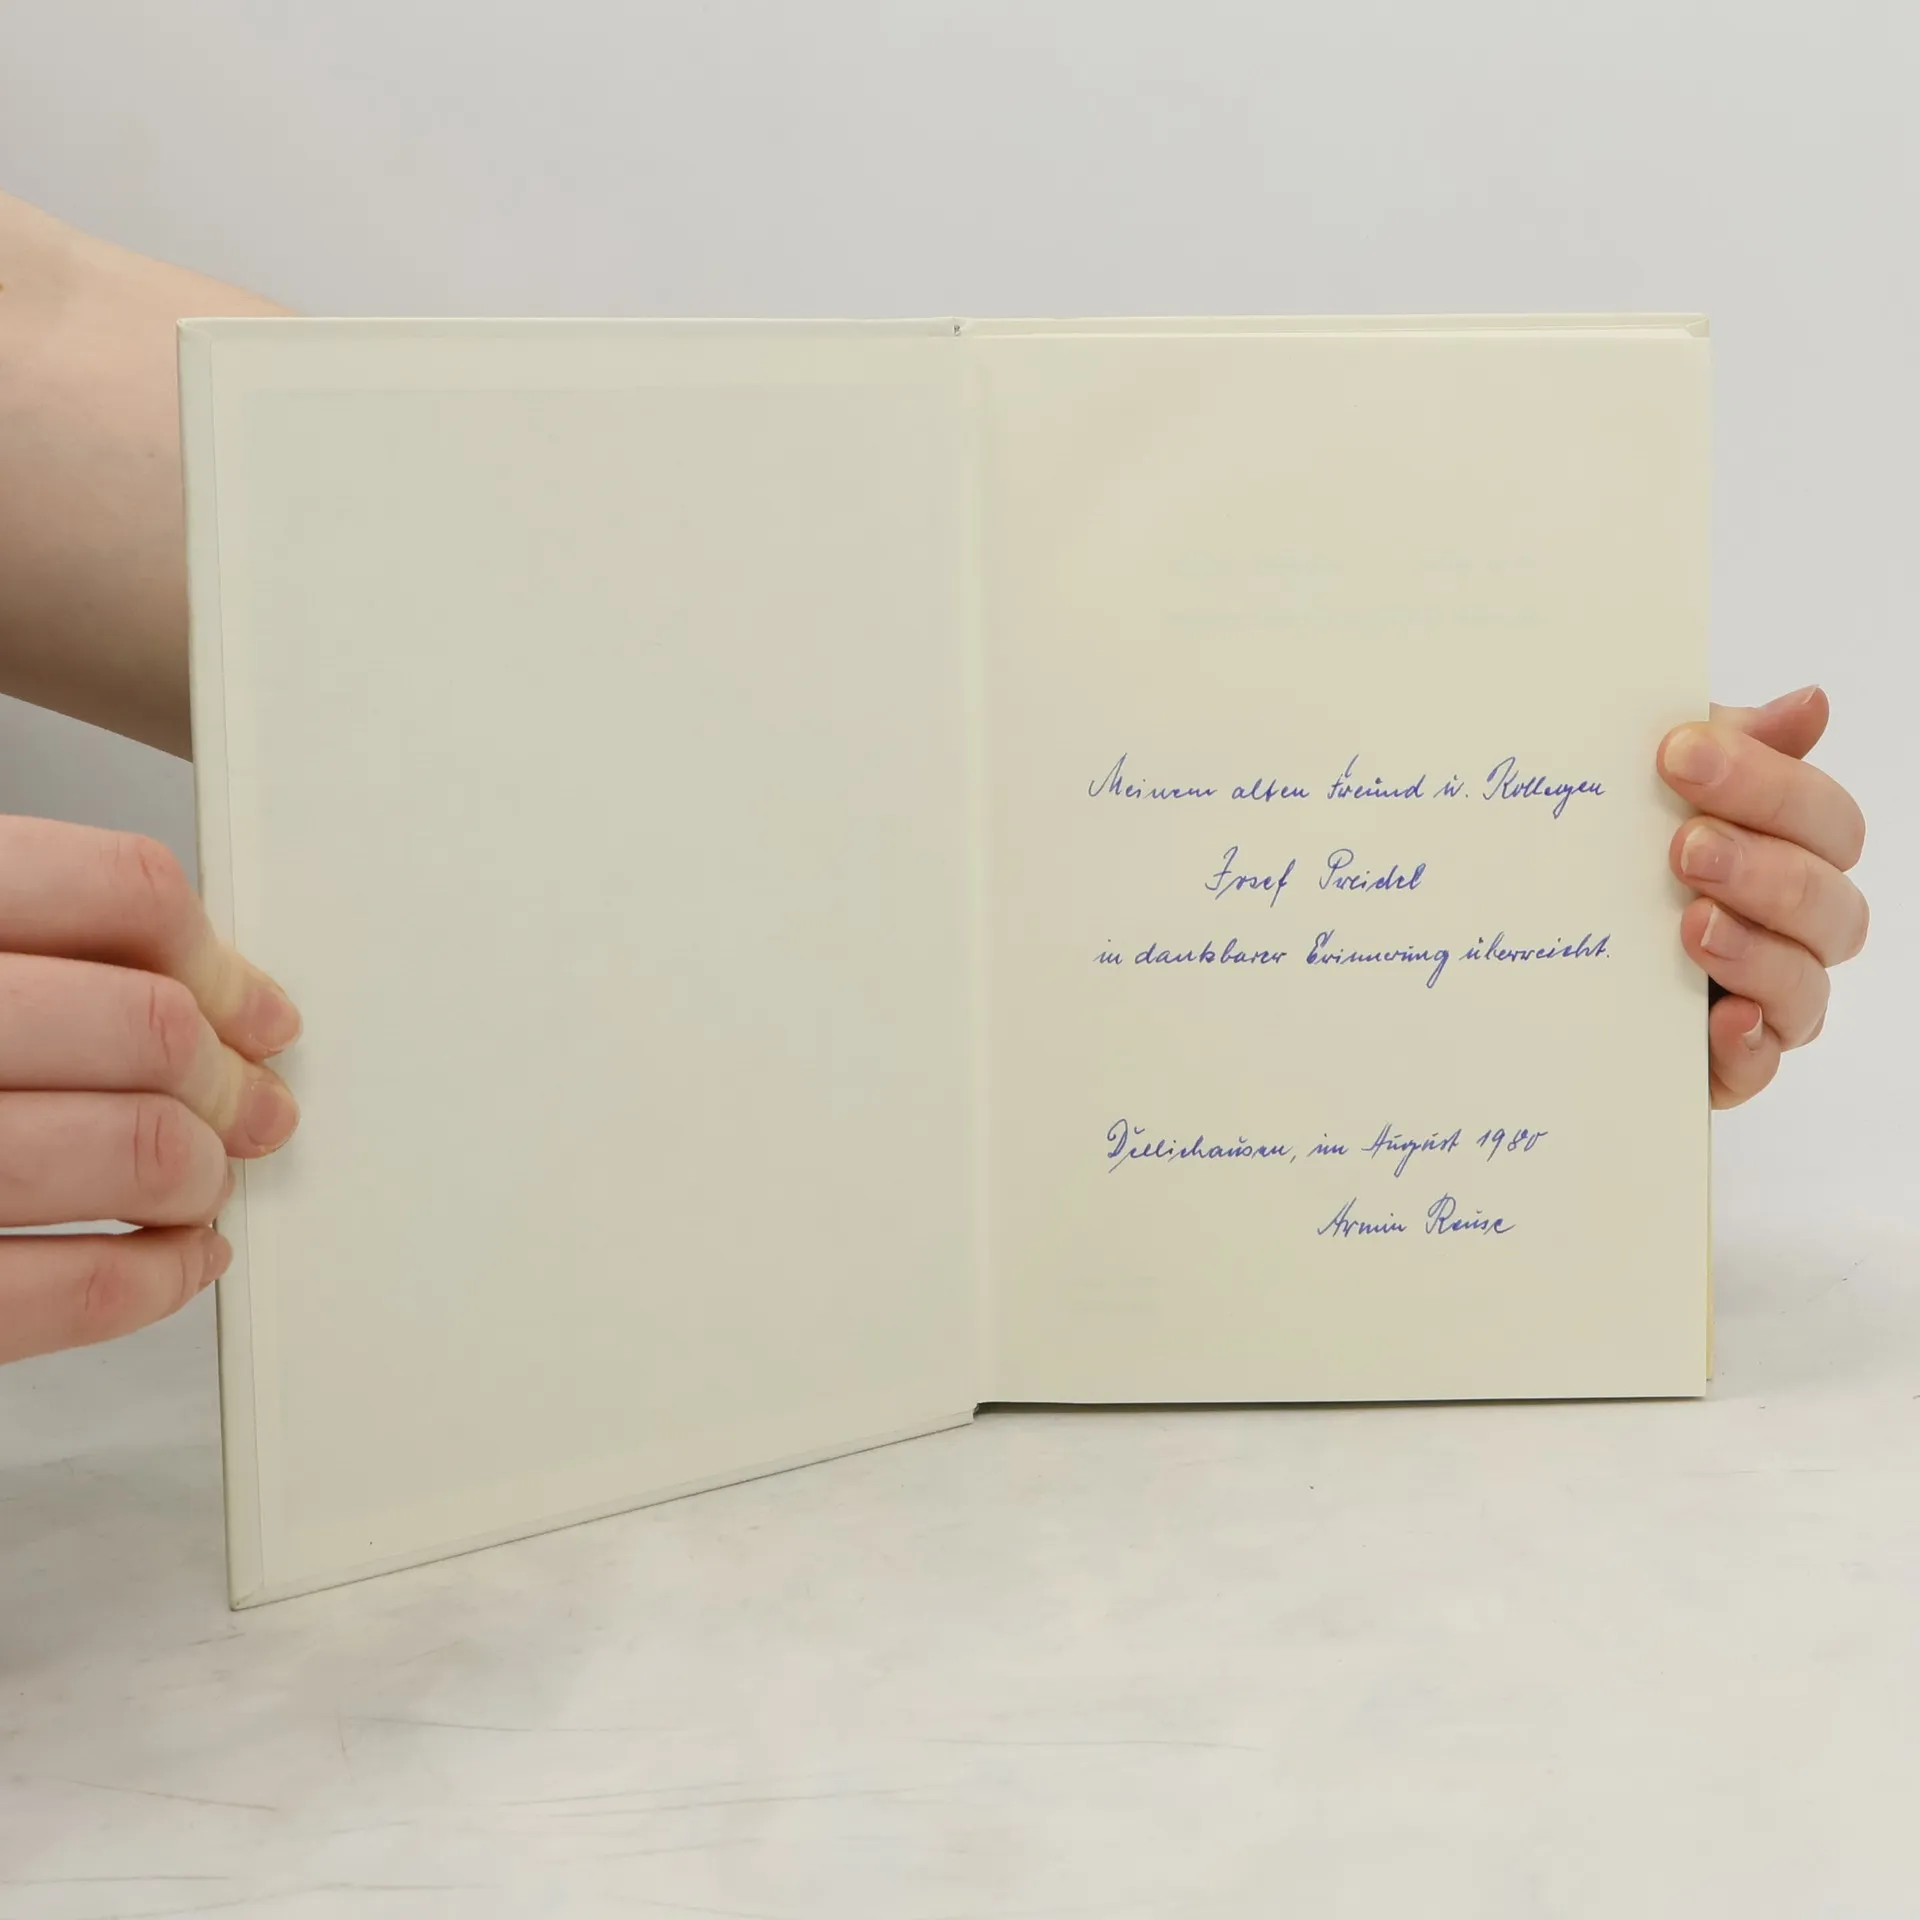 Meinem alten Freund u. Kollegen
Josef Preidel
in dankbarer Erinnerung überreicht.
Dellichausen, im August 1980
Armin Reuse